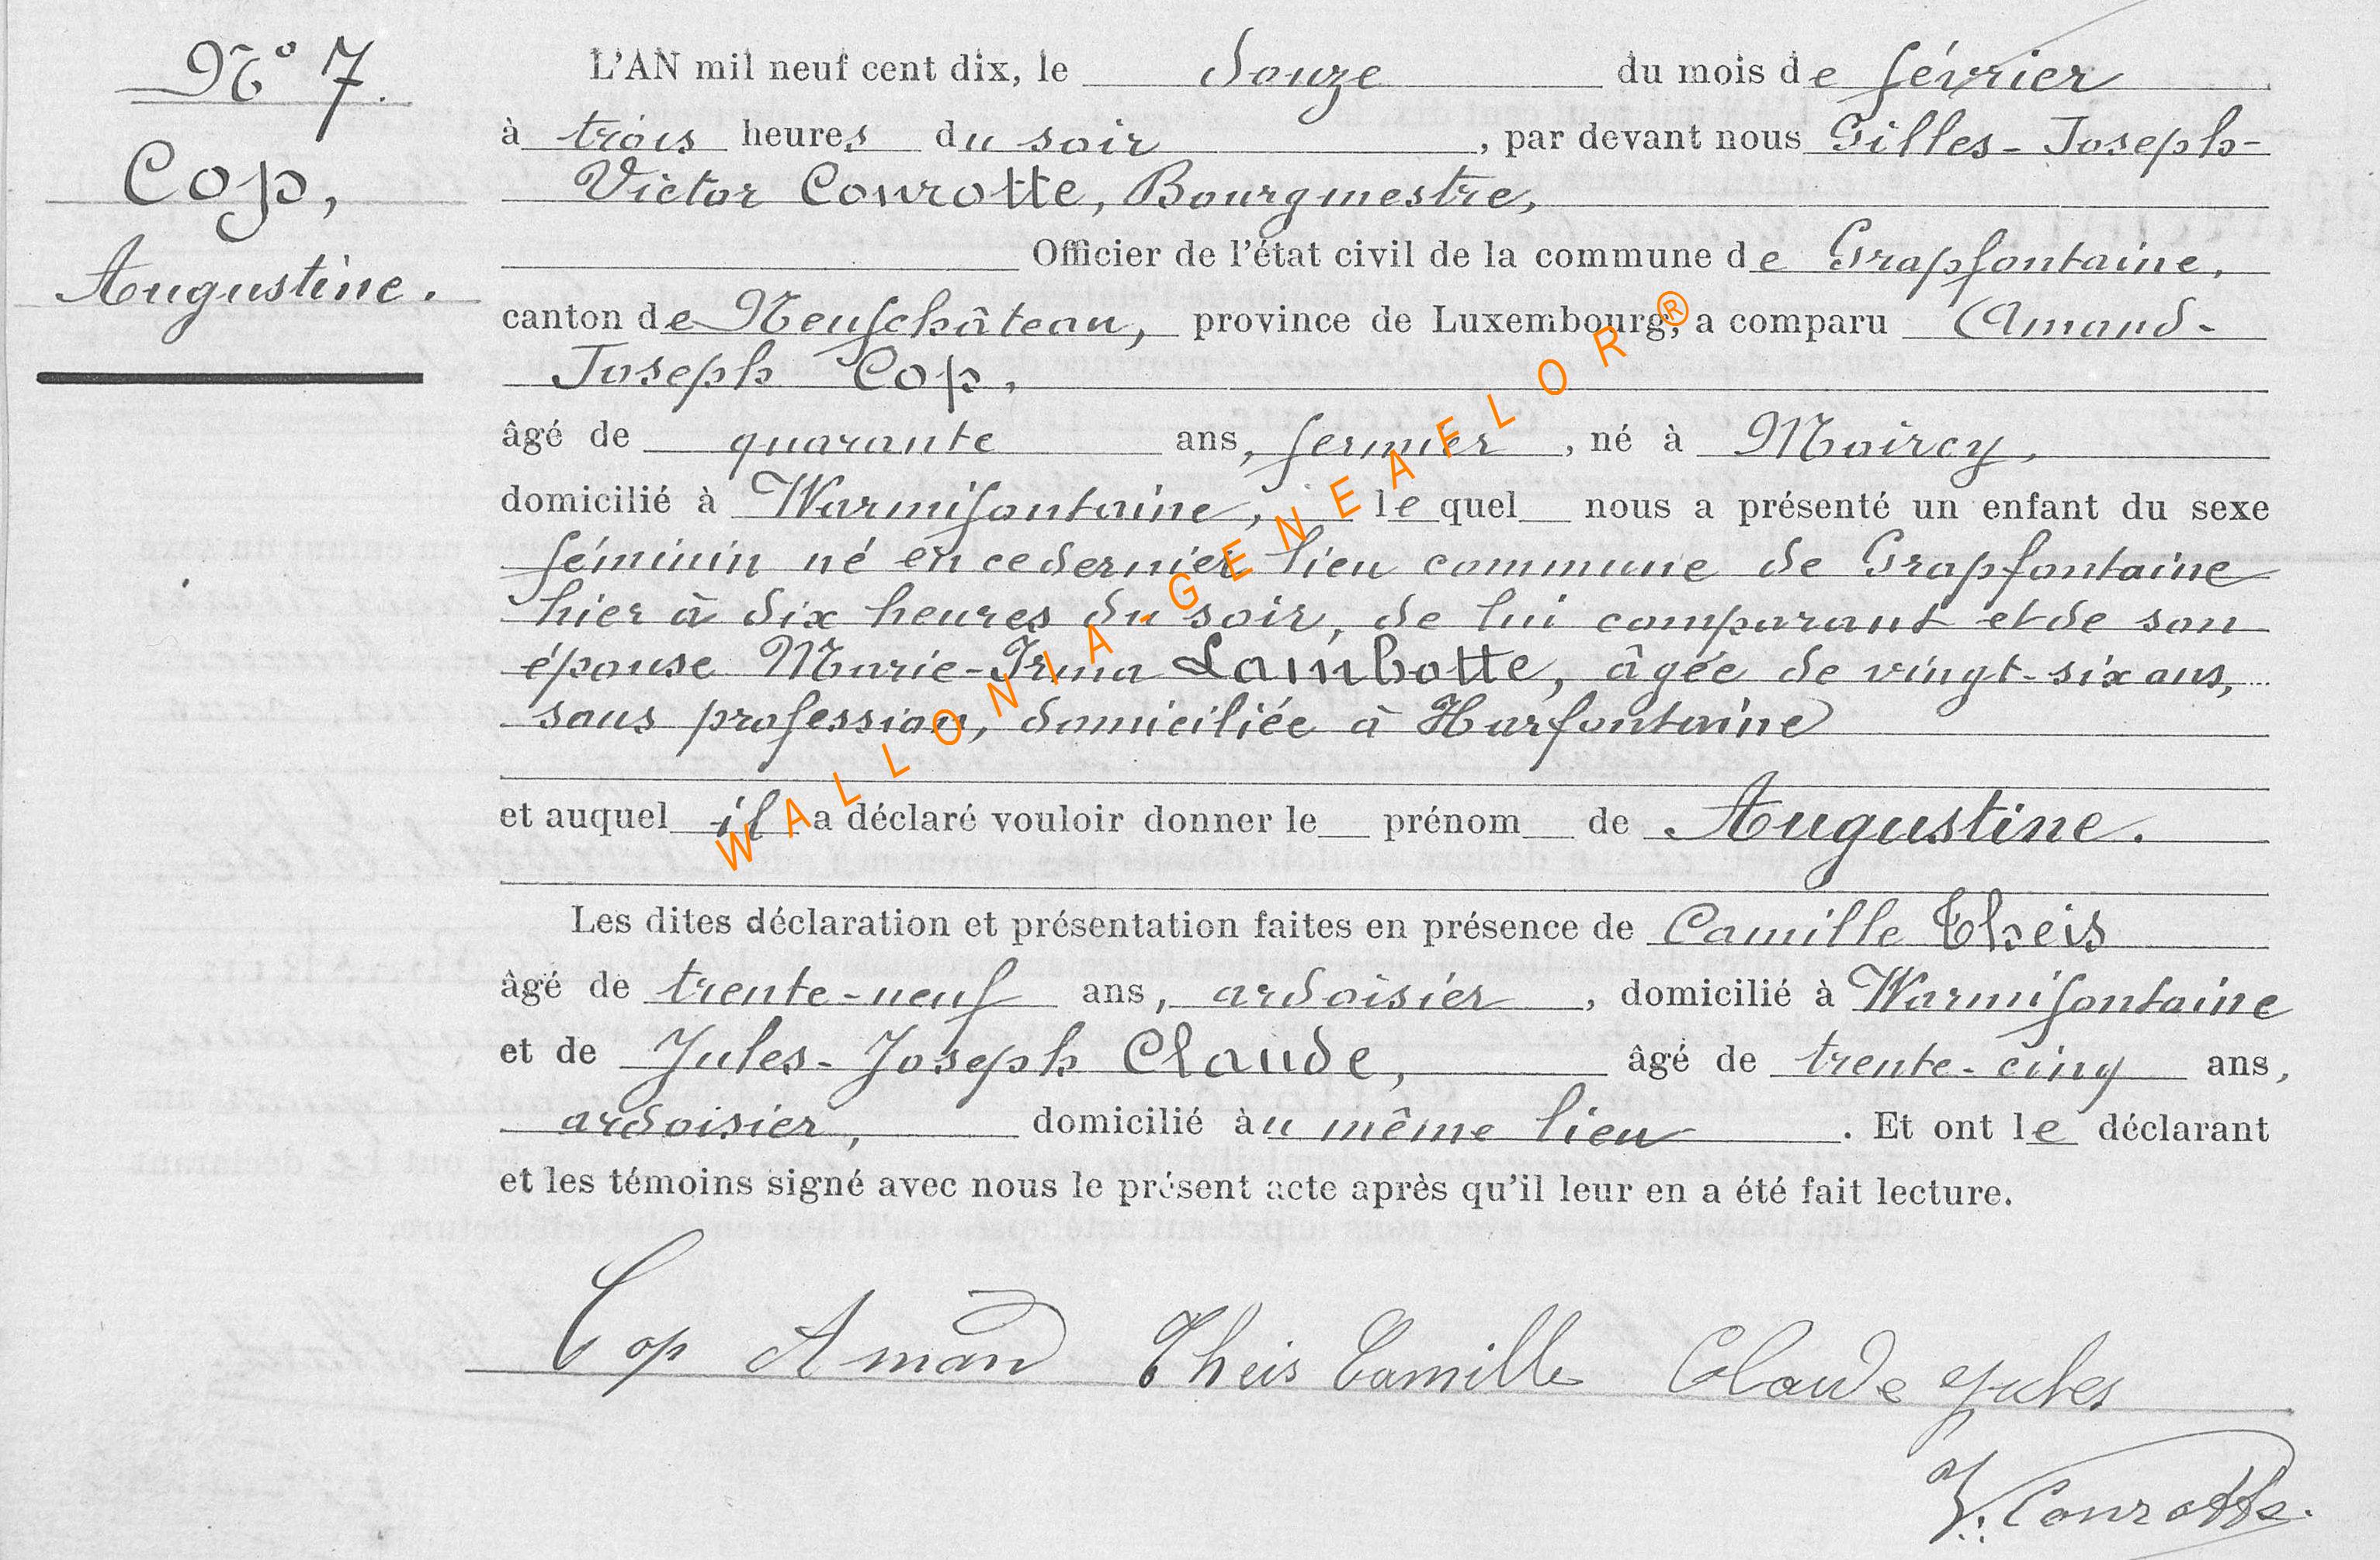 N° 7.
Cop,
Augustine.
L'AN mil neuf cent dix, le douze du mois de février
à trois heures du soir, par devant nous Gilles-Joseph-
Victor Conrotte, Bourgmestre,
Officier de l'état civil de la commune de Grapfontaine,
canton de Neufchâteau, province de Luxembourg, a comparu Amand-
Joseph Cop,
âgé de quarante ans, fermier, né à Moircy,
domicilié à Warmifontaine, lequel nous a présenté un enfant du sexe
féminin né en ce dernier lieu commune de Grapfontaine
hier à dix heures du soir, de lui comparant et de son
épouse Marie-Irma Lambotte, âgée de vingt-six ans,
sans profession, domiciliée à Harfontaine
et auquel il a déclaré vouloir donner le prénom de Augustine.
Les dites déclaration et présentation faites en présence de Camille Theis
âgé de trente-neuf ans, ardoisier, domicilié à Warmifontaine
et de Jules-Joseph Claude, âgé de trente-cinq ans,
ardoisier, domicilié au même lieu. Et ont le déclarant
et les témoins signé avec nous le présent acte après qu'il leur en a été fait lecture.
Cop Amand Theis Camille Claude Jules
V. Conrotte.
WALLONIA-GENEAFLOR®